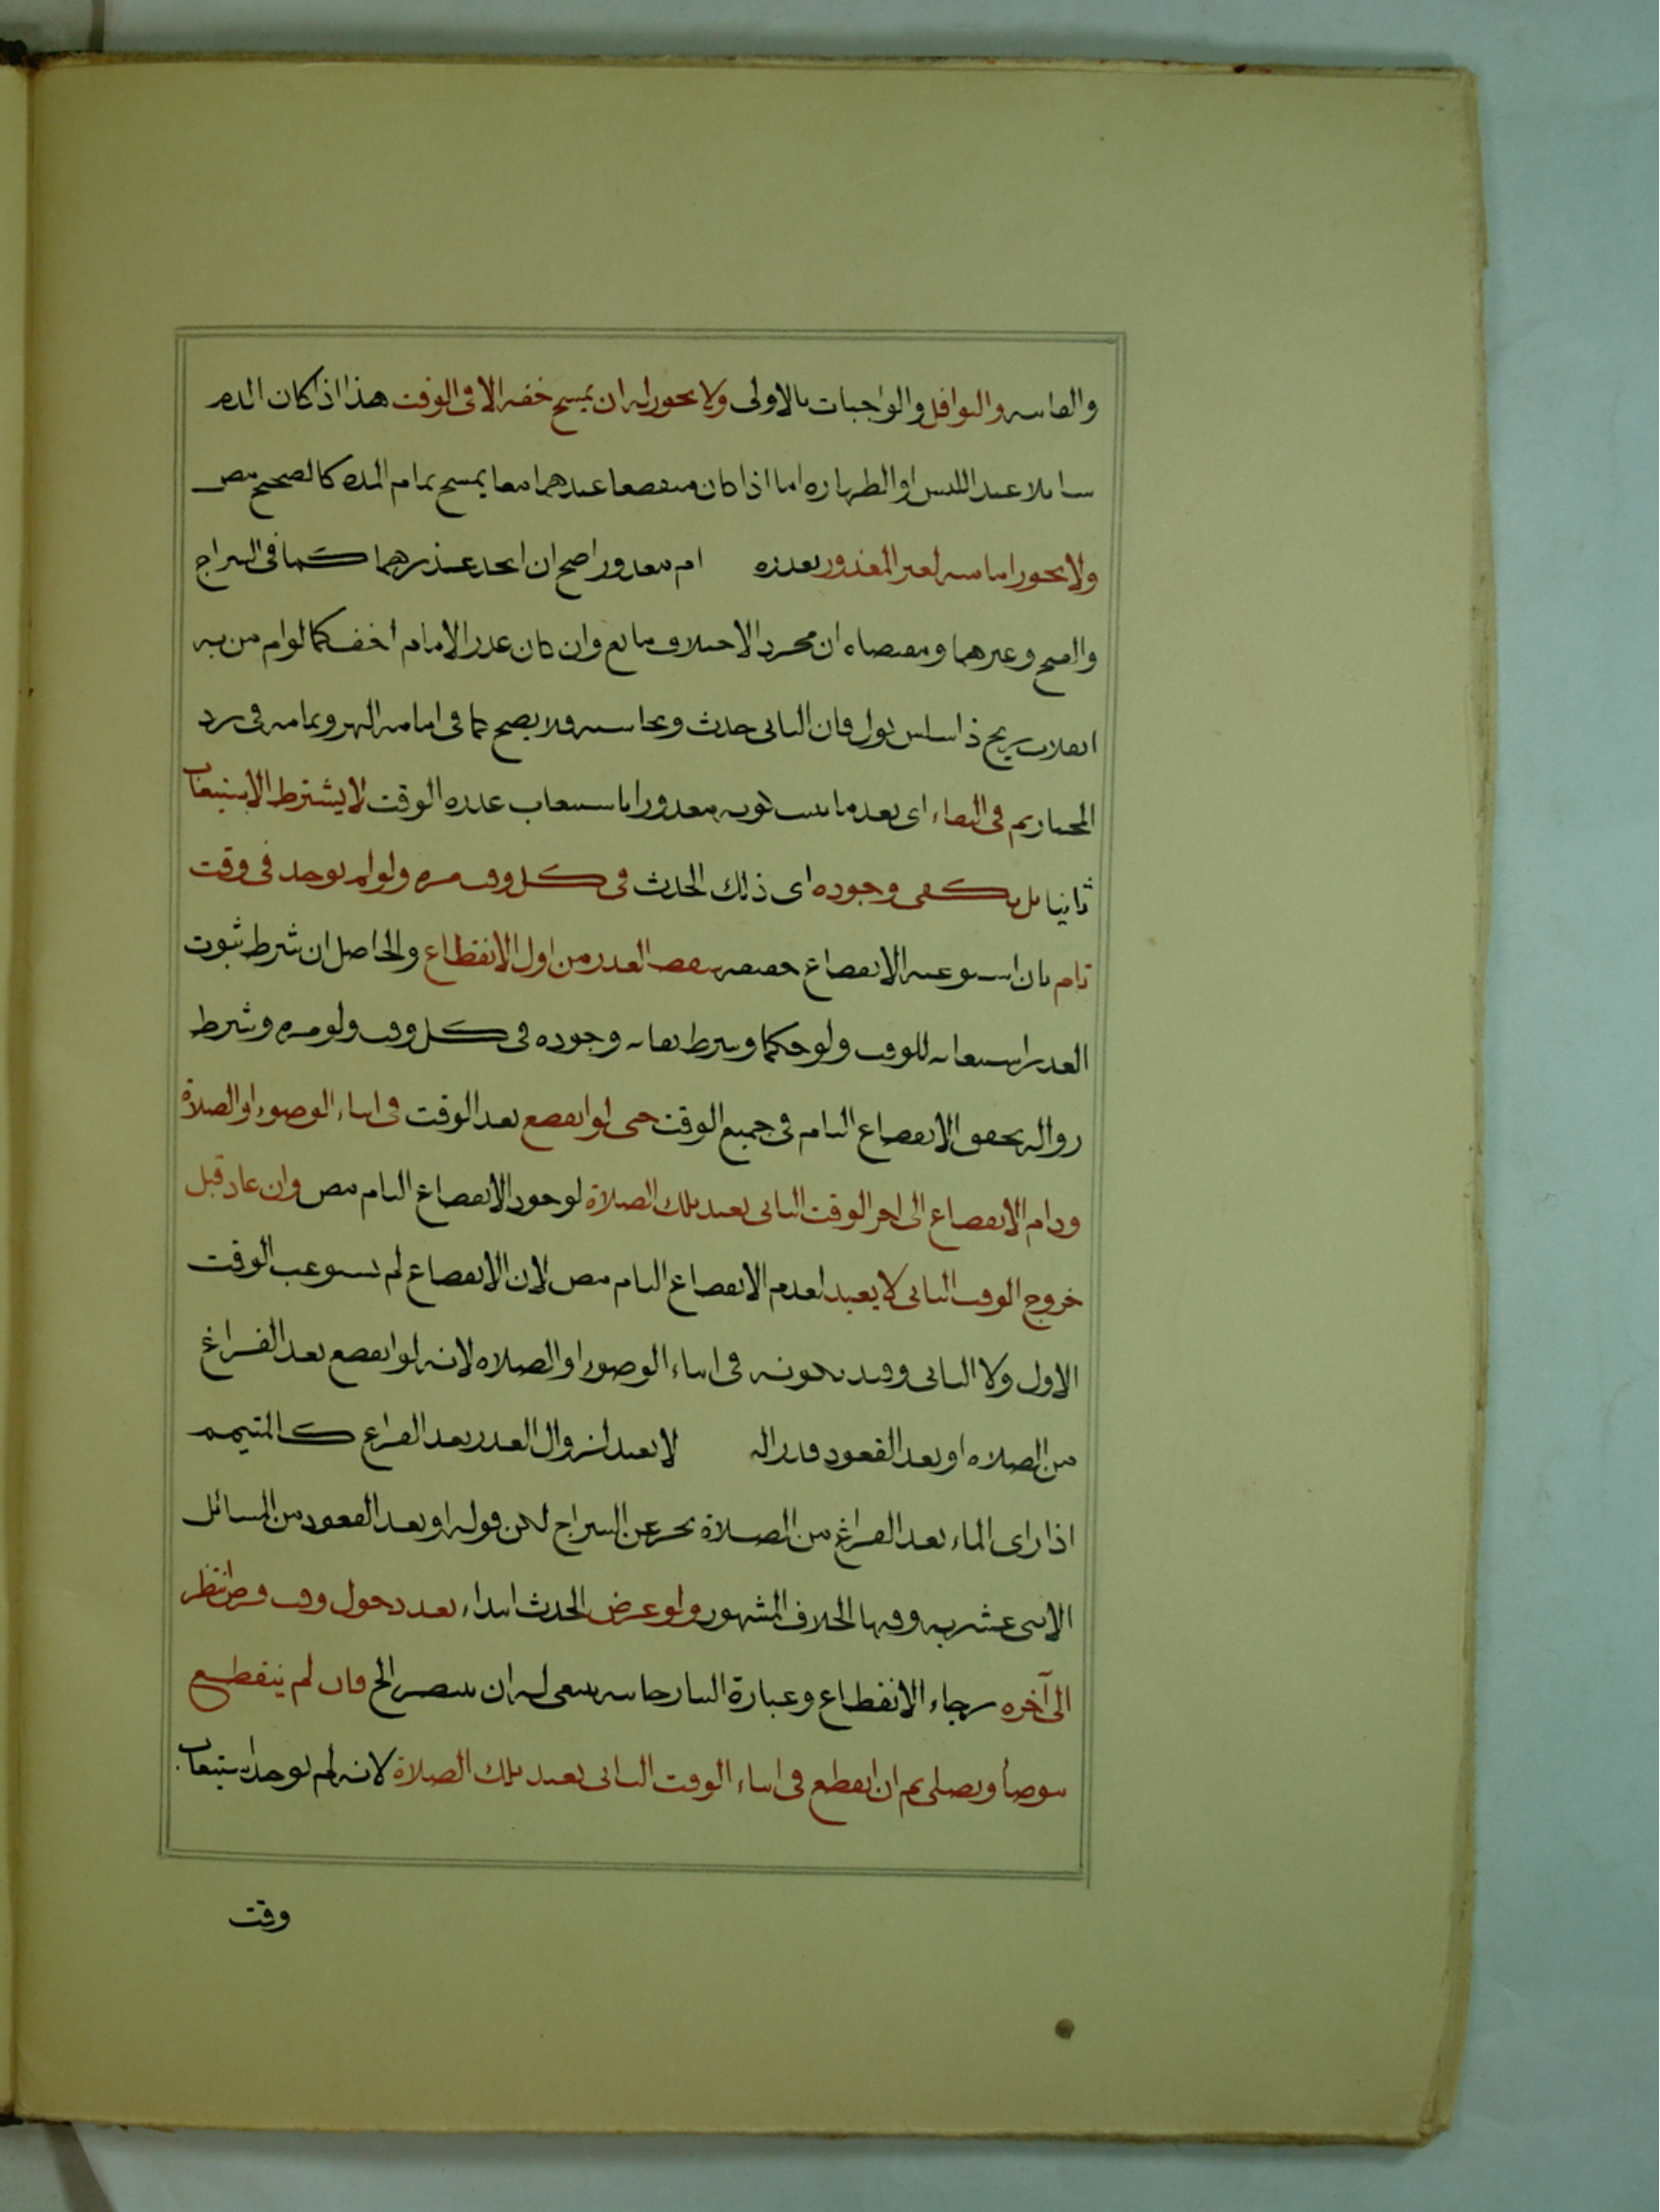 والفائتة والنوافل والواجبات بالاولى ولا يجوز له ان يمسح خفه الا فى الوقت هذا اذا كان الدم
سائلا عند اللبس او الطهارة اما اذا كان منقطعا عندهما معا يمسح تمام المدة كالصحيح مص
ولا يجوز امامته لغير المعذور بعذره ام معذورا صح ان اتحد عذرهما كما فى السراج
والفتح وغيرهما ومقتضاه ان مجرد الاختلاف مانع وان كان عذر الامام اخف كما لو ام من به
انفلات ريح ذا سلس بول فان الثانى حدث ونجاسة فلا يصح كما فى امامة النهر وتمامه فى رد
المحتار ثم فى البقاء اى بعد ما ثبت كونه معذورا باستيعاب عذره الوقت لا يشترط الاستيعاب
ثانيا بل يكفى وجوده اى ذلك الحدث فى كل وقت مرة ولو لم يوجد فى وقت
تام بان استوعبه الانقطاع حقيقة سقط العذر من اول الانقطاع والحاصل ان شرط ثبوت
العذر استيعابه للوقت ولو حكما وشرط بقائه وجوده فى كل وقت ولو مرة وشرط
زواله تحقق الانقطاع التام فى جميع الوقت حتى لو انقطع بعد الوقت فى اثناء الوضوء او الصلاة
ودام الانقطاع الى اخر الوقت الثانى يعيد تلك الصلاة لوجود الانقطاع التام مص وان عاد قبل
خروج الوقت الثانى لا يعيد لعدم الانقطاع التام مص لان الانقطاع لم يستوعب الوقت
الاول ولا الثانى وقيد بكونه فى اثناء الوضوء او الصلاة لانه لو انقطع بعد الفراغ
من الصلاة او بعد القعود قدر الـ لا يعيد لزوال العذر بعد الفراغ كالمتيمم
اذا راى الماء بعد الفراغ من الصلاة بحر عن السراج لكن قوله او بعد القعود من المسائل
الاثنى عشرية وفيها الخلاف المشهور ولو عرض الحدث ابتداء بعد دخول وقت فرض انتظر
الى آخره رجاء الانقطاع وعبارة التتارخانية ينبغى له ان ينتظر الخ فان لم ينقطع
يتوضأ ويصلى ثم ان انقطع فى اثناء الوقت الثانى يعيد تلك الصلاة لانه لم يوجد استيعاب
وقت